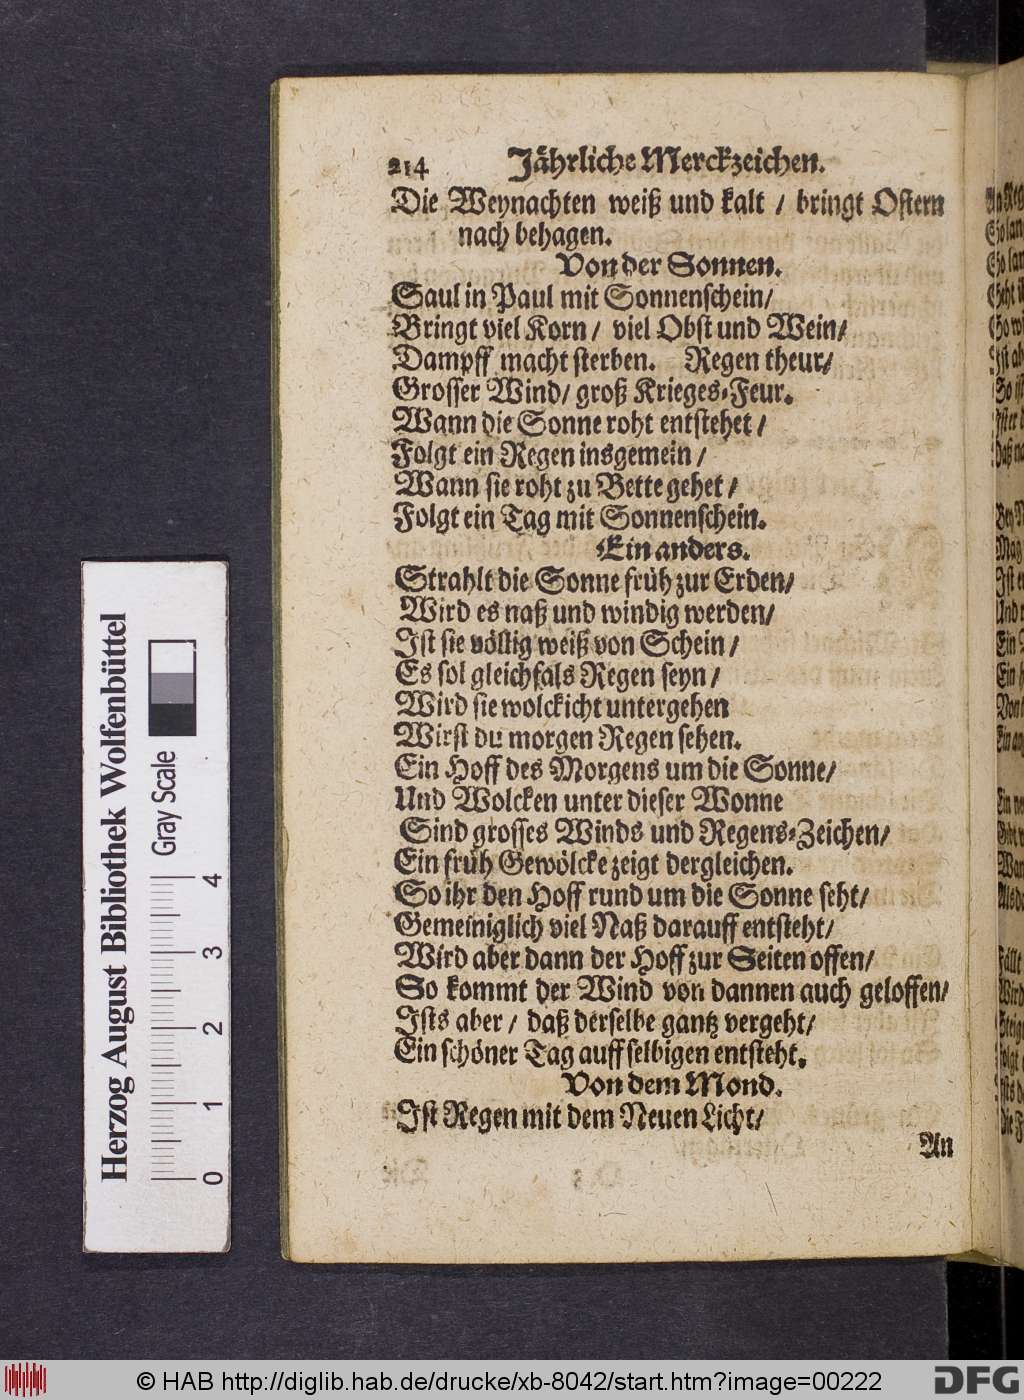 214 Jährliche Merckzeichen.
Die Weynachten weiß und kalt / bringt Ostern
nach behagen.
Von der Sonnen.
Saul in Paul mit Sonnenschein/
Bringt viel Korn / viel Obst und Wein/
Dampff macht sterben. Regen theur/
Grosser Wind/ groß Krieges-Feur.
Wann die Sonne roht entstehet /
Folgt ein Regen insgemein /
Wann sie roht zu Bette gehet /
Folgt ein Tag mit Sonnenschein.
Ein anders.
Strahlt die Sonne früh zur Erden/
Wird es naß und windig werden/
Ist sie völlig weiß von Schein /
Es sol gleichfals Regen seyn /
Wird sie wolckicht untergehen
Wirst du morgen Regen sehen.
Ein Hoff des Morgens um die Sonne/
Und Wolcken unter dieser Wonne
Sind grosses Winds und Regens-Zeichen/
Ein früh Gewölcke zeigt dergleichen.
So ihr den Hoff rund um die Sonne seht/
Gemeiniglich viel Naß darauff entsteht/
Wird aber dann der Hoff zur Seiten offen/
So kommt der Wind von dannen auch geloffen/
Ists aber / daß derselbe gantz vergeht/
Ein schöner Tag auff selbigen entsteht.
Von dem Mond.
Ist Regen mit dem Neuen Licht/
An
Herzog August Bibliothek Wolfenbüttel
Gray Scale
0 1 2 3 4
© HAB http://diglib.hab.de/drucke/xb-8042/start.htm?image=00222
DFG